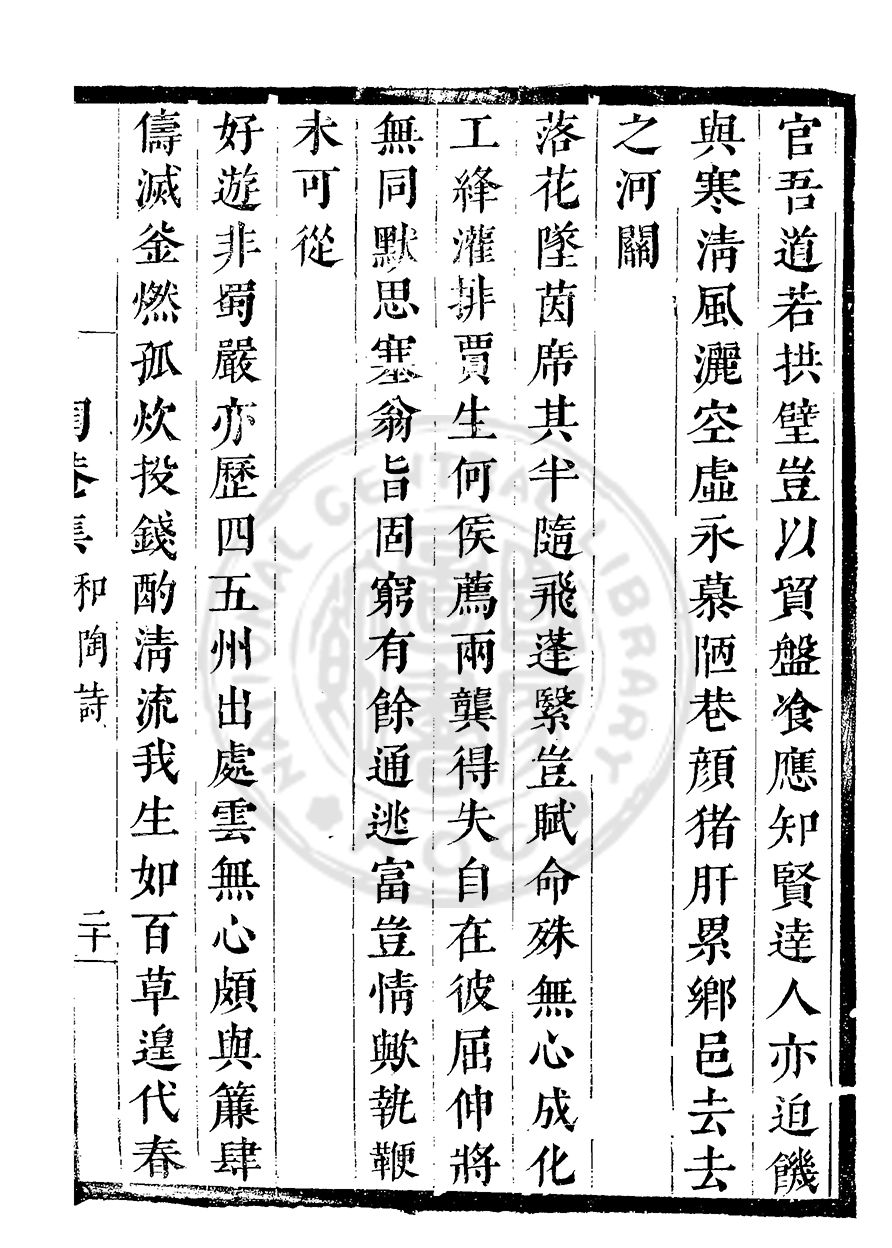 官吾道若拱璧豈以貿盤飡應知賢達人亦迫饑
與寒清風灑空虛永慕陋巷顏猪肝累鄉邑去去
之河關
落花墜茵席其半隨飛蓬緊豈賦命殊無心成化
工絳灌排賈生何侯薦兩龔得失自在彼屈伸將
無同默思塞翁旨固窮有餘通逃富豈情歟執鞭
未可從
好遊非蜀嚴亦歷四五州出處雲無心頗與簾肆
儔滅釜燃孤炊投錢酌清流我生如百草遑代春
陶菴集 和陶詩 二十
NATIONAL CENTRAL LIBRARY